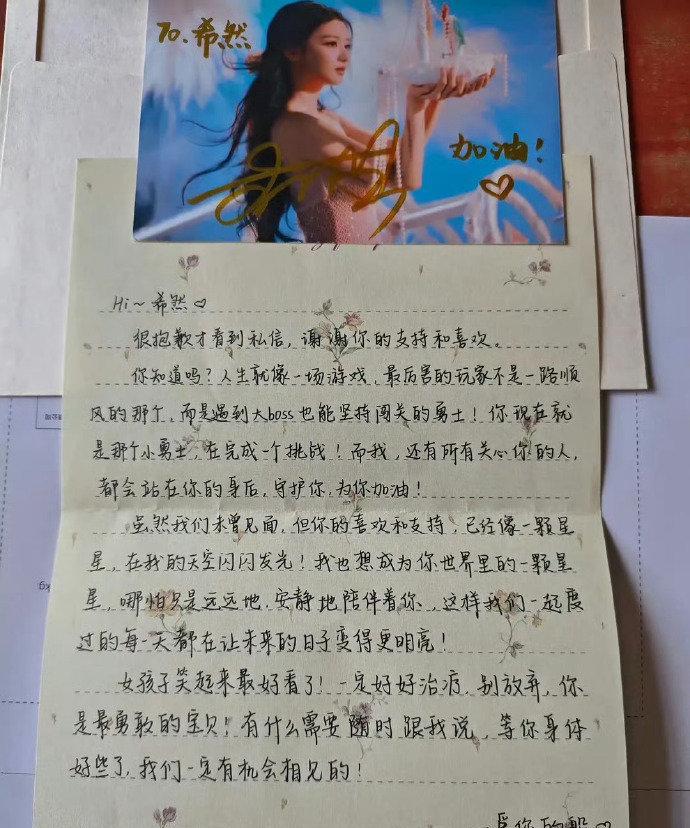 To. 希然
加油！♡
Hi～希然♡
很抱歉才看到私信，谢谢你的支持和喜欢。
你知道吗？人生就像一场游戏，最厉害的玩家不是一路顺
风的那个，而是遇到大boss也能坚持闯关的勇士！你现在就
是那个小勇士，在完成一个挑战！而我，还有所有关心你的人，
都会站在你的身后，守护你，为你加油！
虽然我们未曾见面，但你的喜欢和支持，已经像一颗星
星，在我的天空闪闪发光！我也想成为你世界里的一颗星
星，哪怕只是远远地，安静地陪伴着你，这样我们一起度
过的每一天都在让未来的日子变得更明亮！
女孩子笑起来最好看了！一定好好治疗，别放弃，你
是最勇敢的宝贝！有什么需要随时跟我说，等你身体
好些了，我们一定有机会相见的！
你的